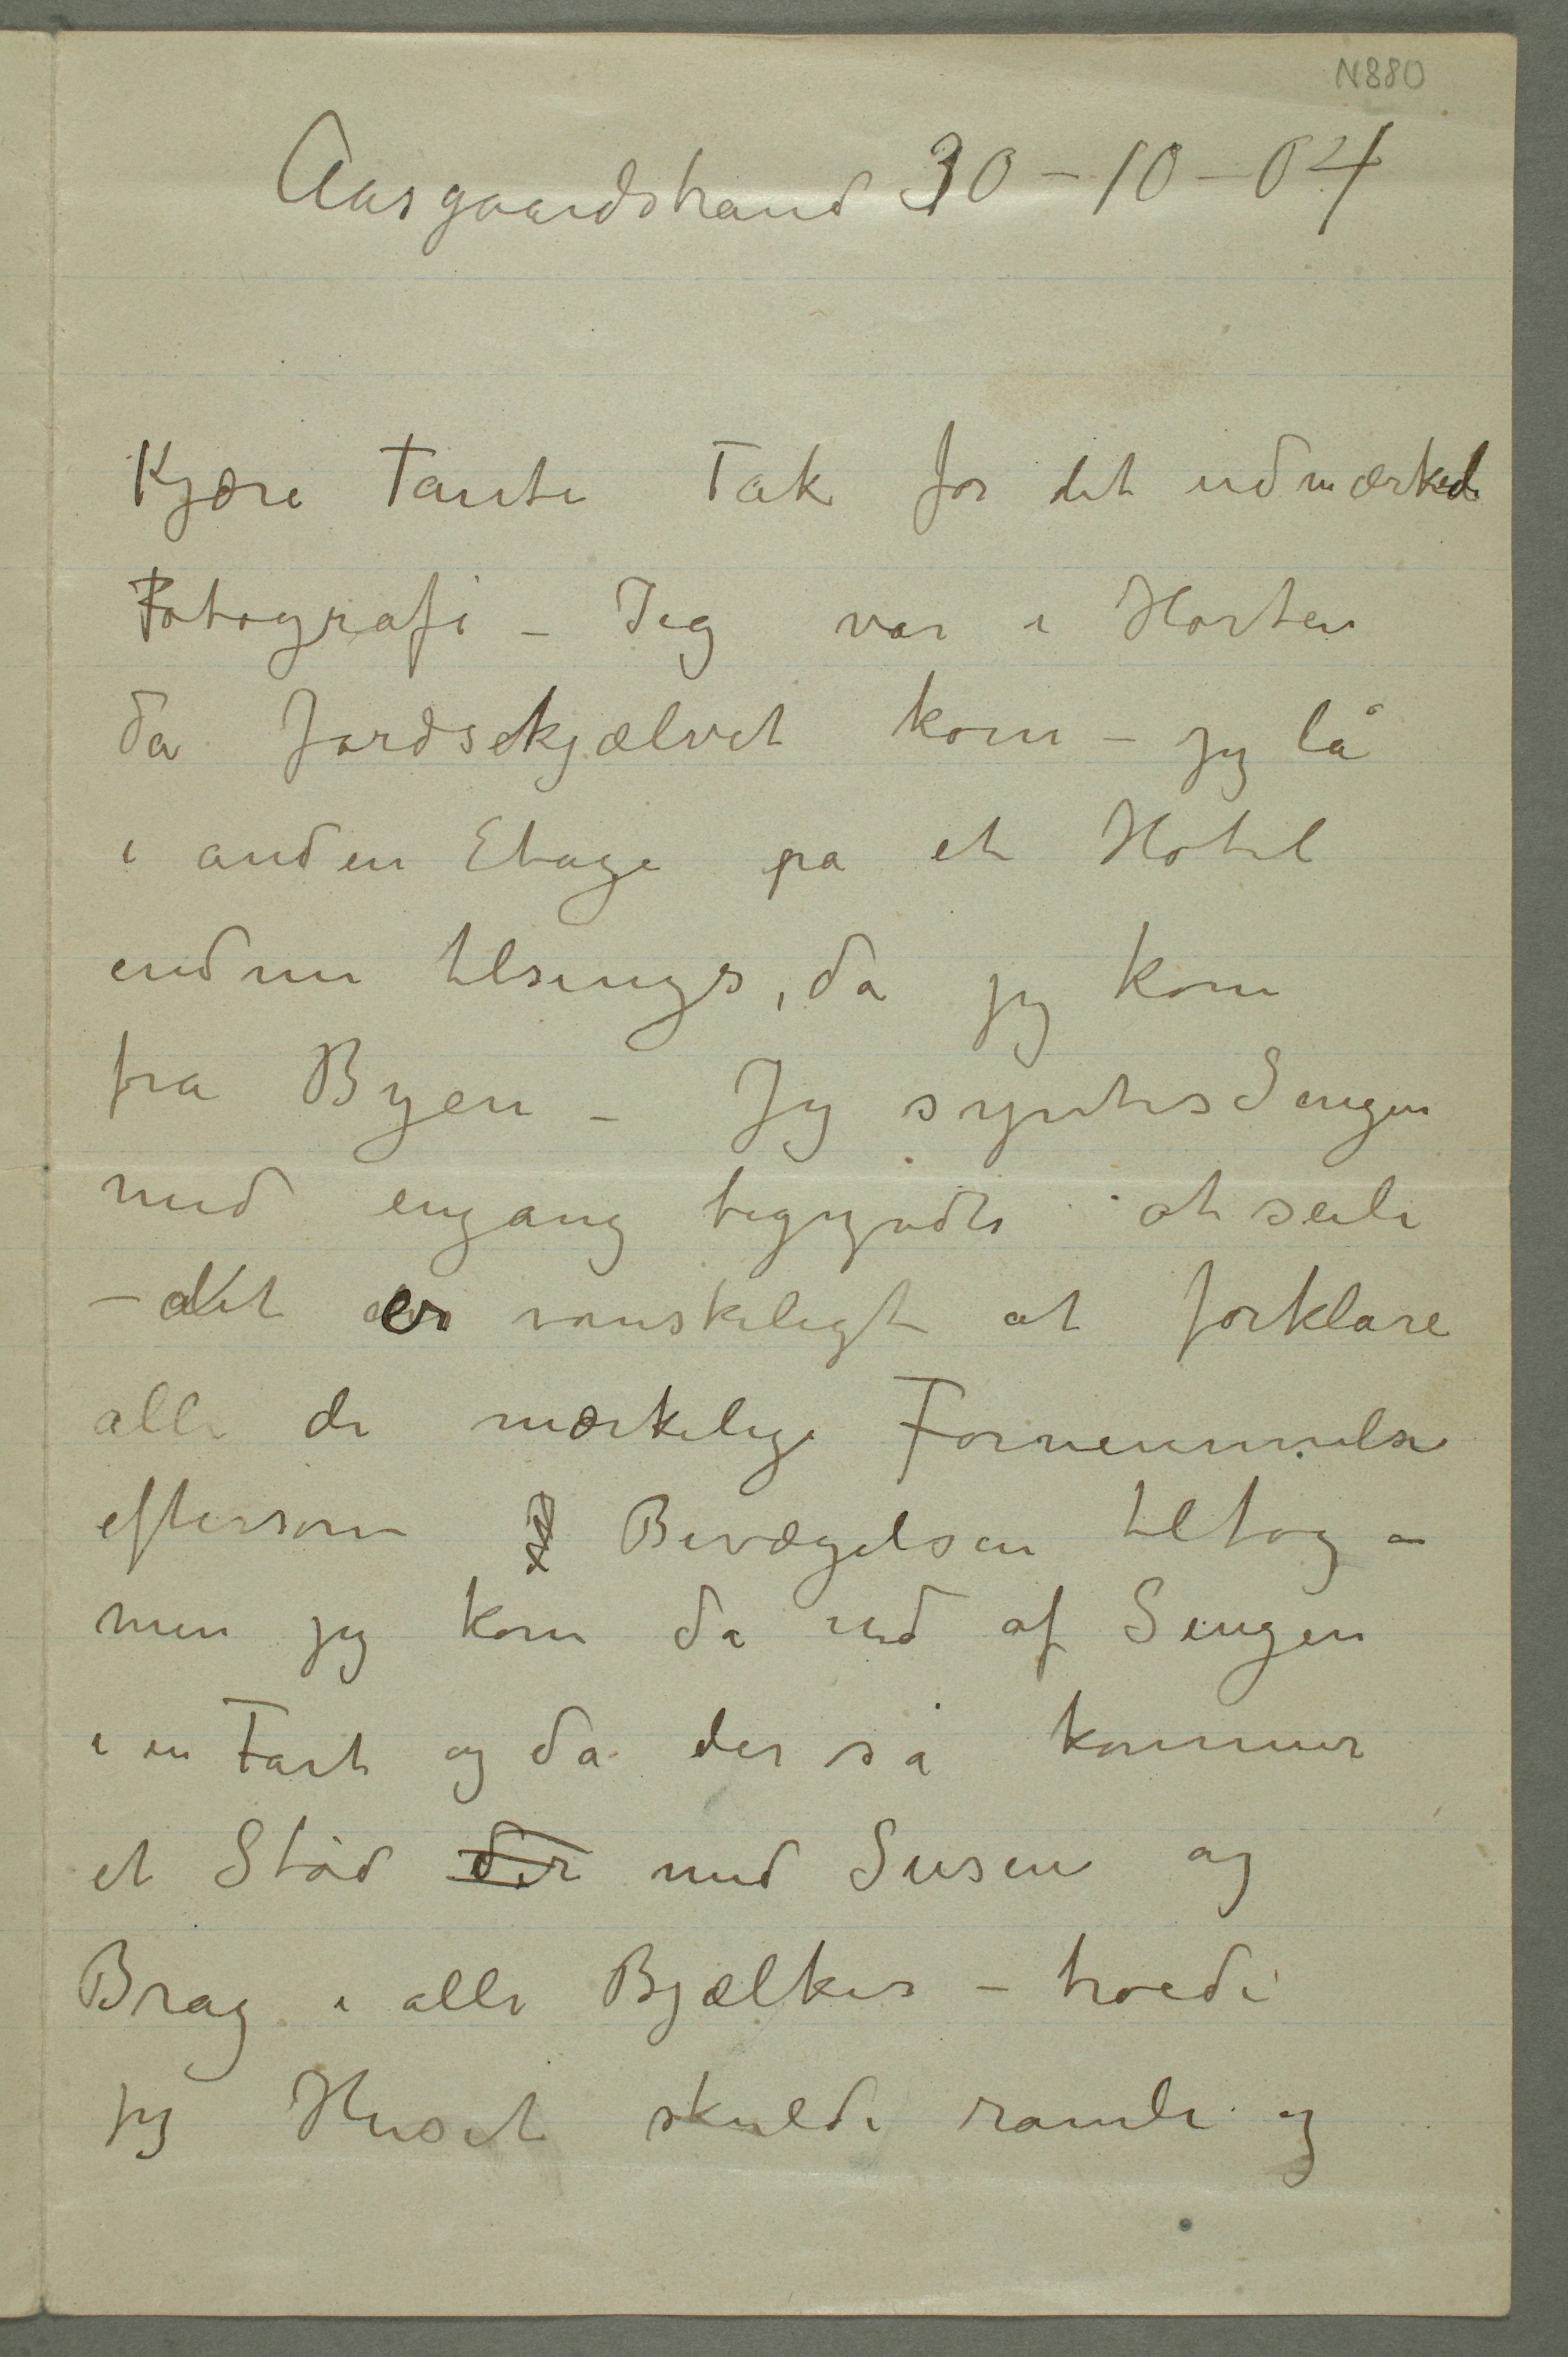 N880
Aasgaardstrand 30-10-04
Kjære Tante Tak for det udmærkede
Fotografi – Jeg var i Horten
da Jordskjælvet kom – jeg lå
i anden Etage pa et Hotel
endnu tilsengs, da jeg kom
fra Byen – Jeg syntes Sengen
med engang begyndte at seile
– det er vanskeligt at forklare
alle de mærkelige Fornemmelse
eftersom Bevægelsen tiltog –
men jeg kom da ud af Sengen
i en Fart og da der så kommer
et Stød der med Susen og
Brag i alle Bjælker – troede
jeg Huset skulde ramle og